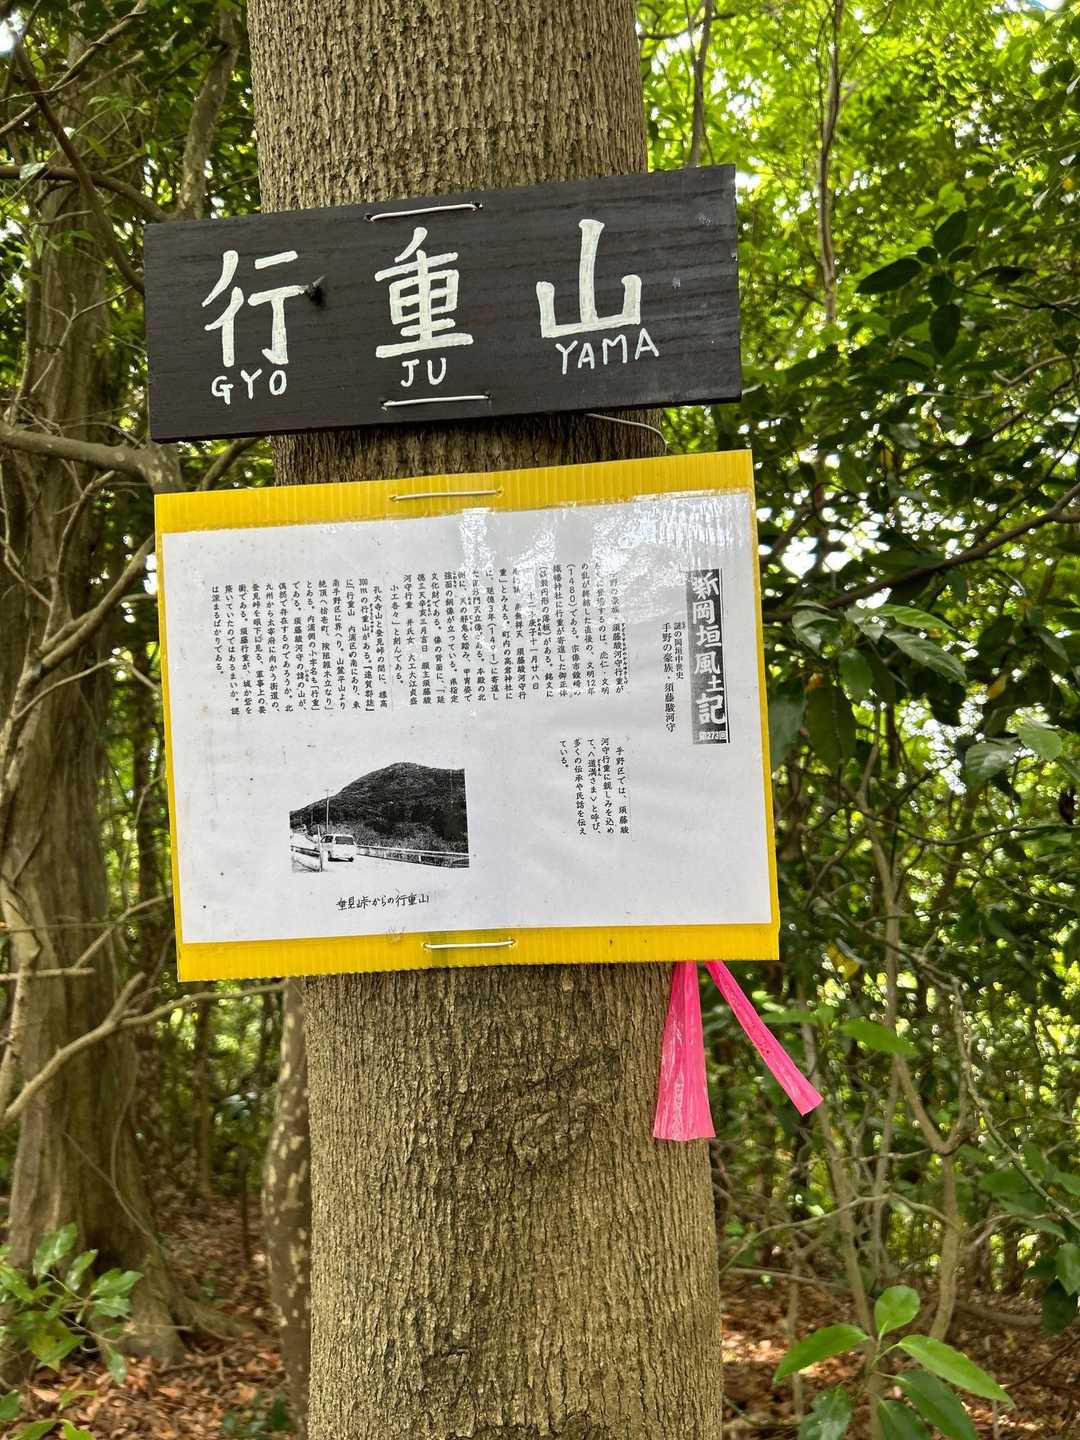 行重山
GYO JU YAMA
新岡垣風土記
第273回
謎の岡垣中世史
手野の豪族・須藤駿河守
の豪族、須藤駿河守行重が
するのは、応仁・文明
の乱が終結した直後の、文明12年
(1480)である。宗像市鐘崎の
織幡神社に行重が寄進した御正体
(仏製円形の薄板)がある。銘文に
十二年庚子十一月廿八日
須藤駿河守行
重」とみえる。町内の高倉神社に
、延徳3年(1491)に寄進し
門天立像がある。本殿の北
側に、天の邪鬼を踏み、甲冑姿で
憤面の銅像が立っている。県指定
文化財である。像の背面に、「延
徳三天辛亥三月吉日 願主須藤駿
河守行重 并氏女 大工大江貞盛
小工各々」と刻んである。
孔大寺山と垂見峠の間に、標高
300mの行重山がある。『遠賀郡誌』
に「行重山 内浦区の南にあり、東
南手野区に界へり、山麓平山より
絶頂へ拾壱町、険阻雑木立なり」
とある。内浦側の小字名も「行重」
である。須藤駿河守の諱の山が、
偶然で存在するのであろうか。北
九州から太宰府に向かう街道の、
垂見峠を眼下に見る、軍事上の要
衝である。須藤行重が、城か砦を
築いていたのではあるまいか。謎
は深まるばかりである。
手野区では、須藤駿
河守行重に親しみを込め
て、〈道満さま〉と呼び、
多くの伝承や民話を伝え
ている。
垂見峠からの行重山